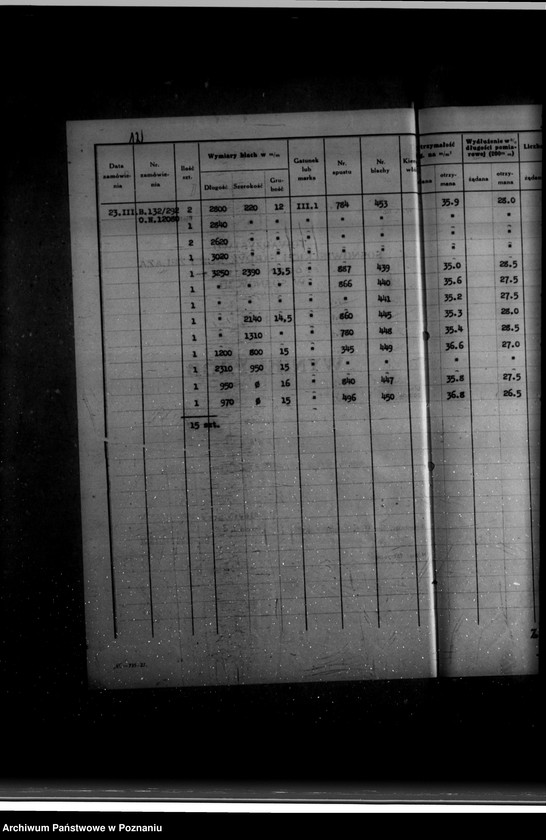 Data zamówie- nia
Nr. zamówie- nia
Ilość szt.
Wymiary blach w m/m
Długość Szerokość Gru- bość
Gatunek lub marka
Nr. spustu
Nr. blachy
otrzy- mana
Wydłużenie w %
długości pomia-
rowej (200 m/m)
żądana otrzy- mana
23.III. N.132/292 2 2800 220 12 III.1 784 453 35.9 28.0
1 2840 " " " " " " "
2 2620 " " " " " " "
1 3020 " " " " " " "
1 3250 2390 13,5 " 887 439 35.0 28.5
1 " " " " 866 440 35.6 27.5
1 " " " " " 441 35.2 27.5
1 " 2140 14,5 " 860 445 35.3 28.0
1 " 1310 " " 780 448 35.4 28.5
1 1200 800 15 " 345 449 36.6 27.0
1 2310 950 15 " " " " "
1 950 ø 16 " 840 447 35.8 27.5
1 970 ø 15 " 496 450 36.8 26.5
15 szt.
Archiwum Państwowe w Poznaniu